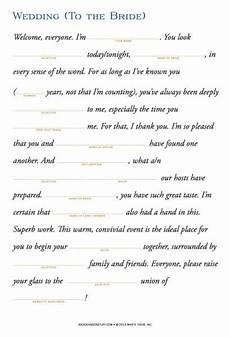 WEDDING (TO THE BRIDE)
Welcome, everyone. I'm . You look
YOUR NAME
today/tonight, , in
ADJECTIVE NAME OF BRIDE
every sense of the word. For as long as I've known you
( years, not that I'm counting), you've always been deeply
NUMBER
to me, especially the time you
ADJECTIVE
me. For that, I thank you. I'm so pleased
PAST TENSE VERB
that you and have found one
NAME OF SPOUSE
another. And , what a/n
EXCLAMATION
our hosts have
ADJECTIVE NOUN
prepared. , you have such great taste. I'm
NAME OF BRIDE
certain that also had a hand in this.
Superb work. This warm, convivial event is the ideal place for
you to begin your together, surrounded by
NOUN
family and friends. Everyone, please raise
ADJECTIVE
your glass to the union of
ADJECTIVE
!